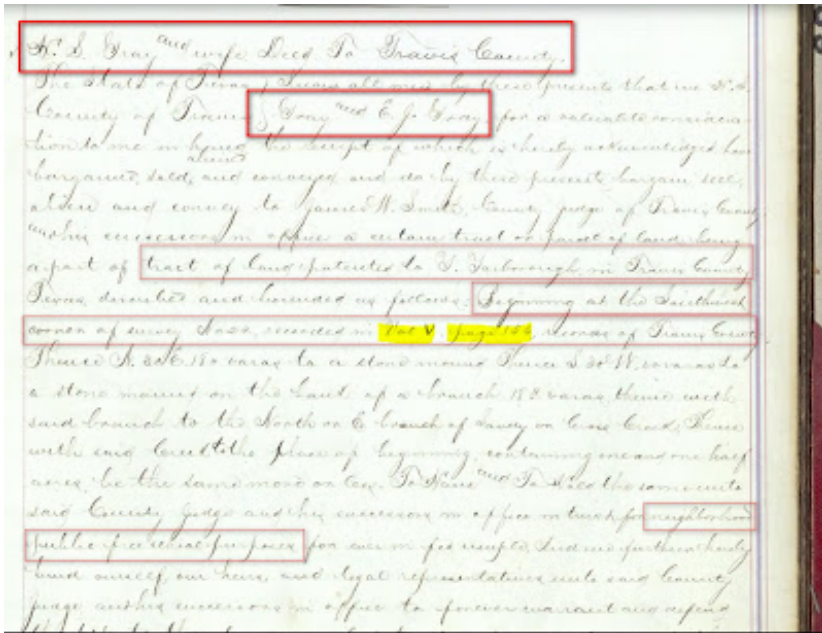 W. S. Gray and wife Deed To Travis County.
The State of Texas } Know all men by these presents that we W. S.
County of Travis } Gray and E. J. Gray, for a valuable considera-
tion to me in hand the receipt of which is hereby acknowledged have
bargained, sold, and conveyed and do by these presents bargain sell,
alien and convey to James W. Smith, County judge of Travis County
and his successors in office a certain tract or parcel of land being
a part of tract of land patented to S. Yarborough, in Travis County
Texas, described and bounded as follows: Beginning at the Southwest
corner of survey recorded in Vol V. page 156 records of Travis County
Thence N. 30 E. 180 varas to a stone mound Thence S 30 W. varas to
a stone mound on the bank of a branch 183 varas, thence with
said branch to the North or E. branch of on Creek, Thence
with said Creek to the place of beginning, containing one and one half
acres, be the same more or less. To Have and To Hold the same unto
said County judge and his successors in office in trust for neighborhood
public free school purposes for ever in fee simple, And we further hereby
bind ourself, our heirs, and legal representatives unto said County
judge and his successors in office to forever warrant and defend